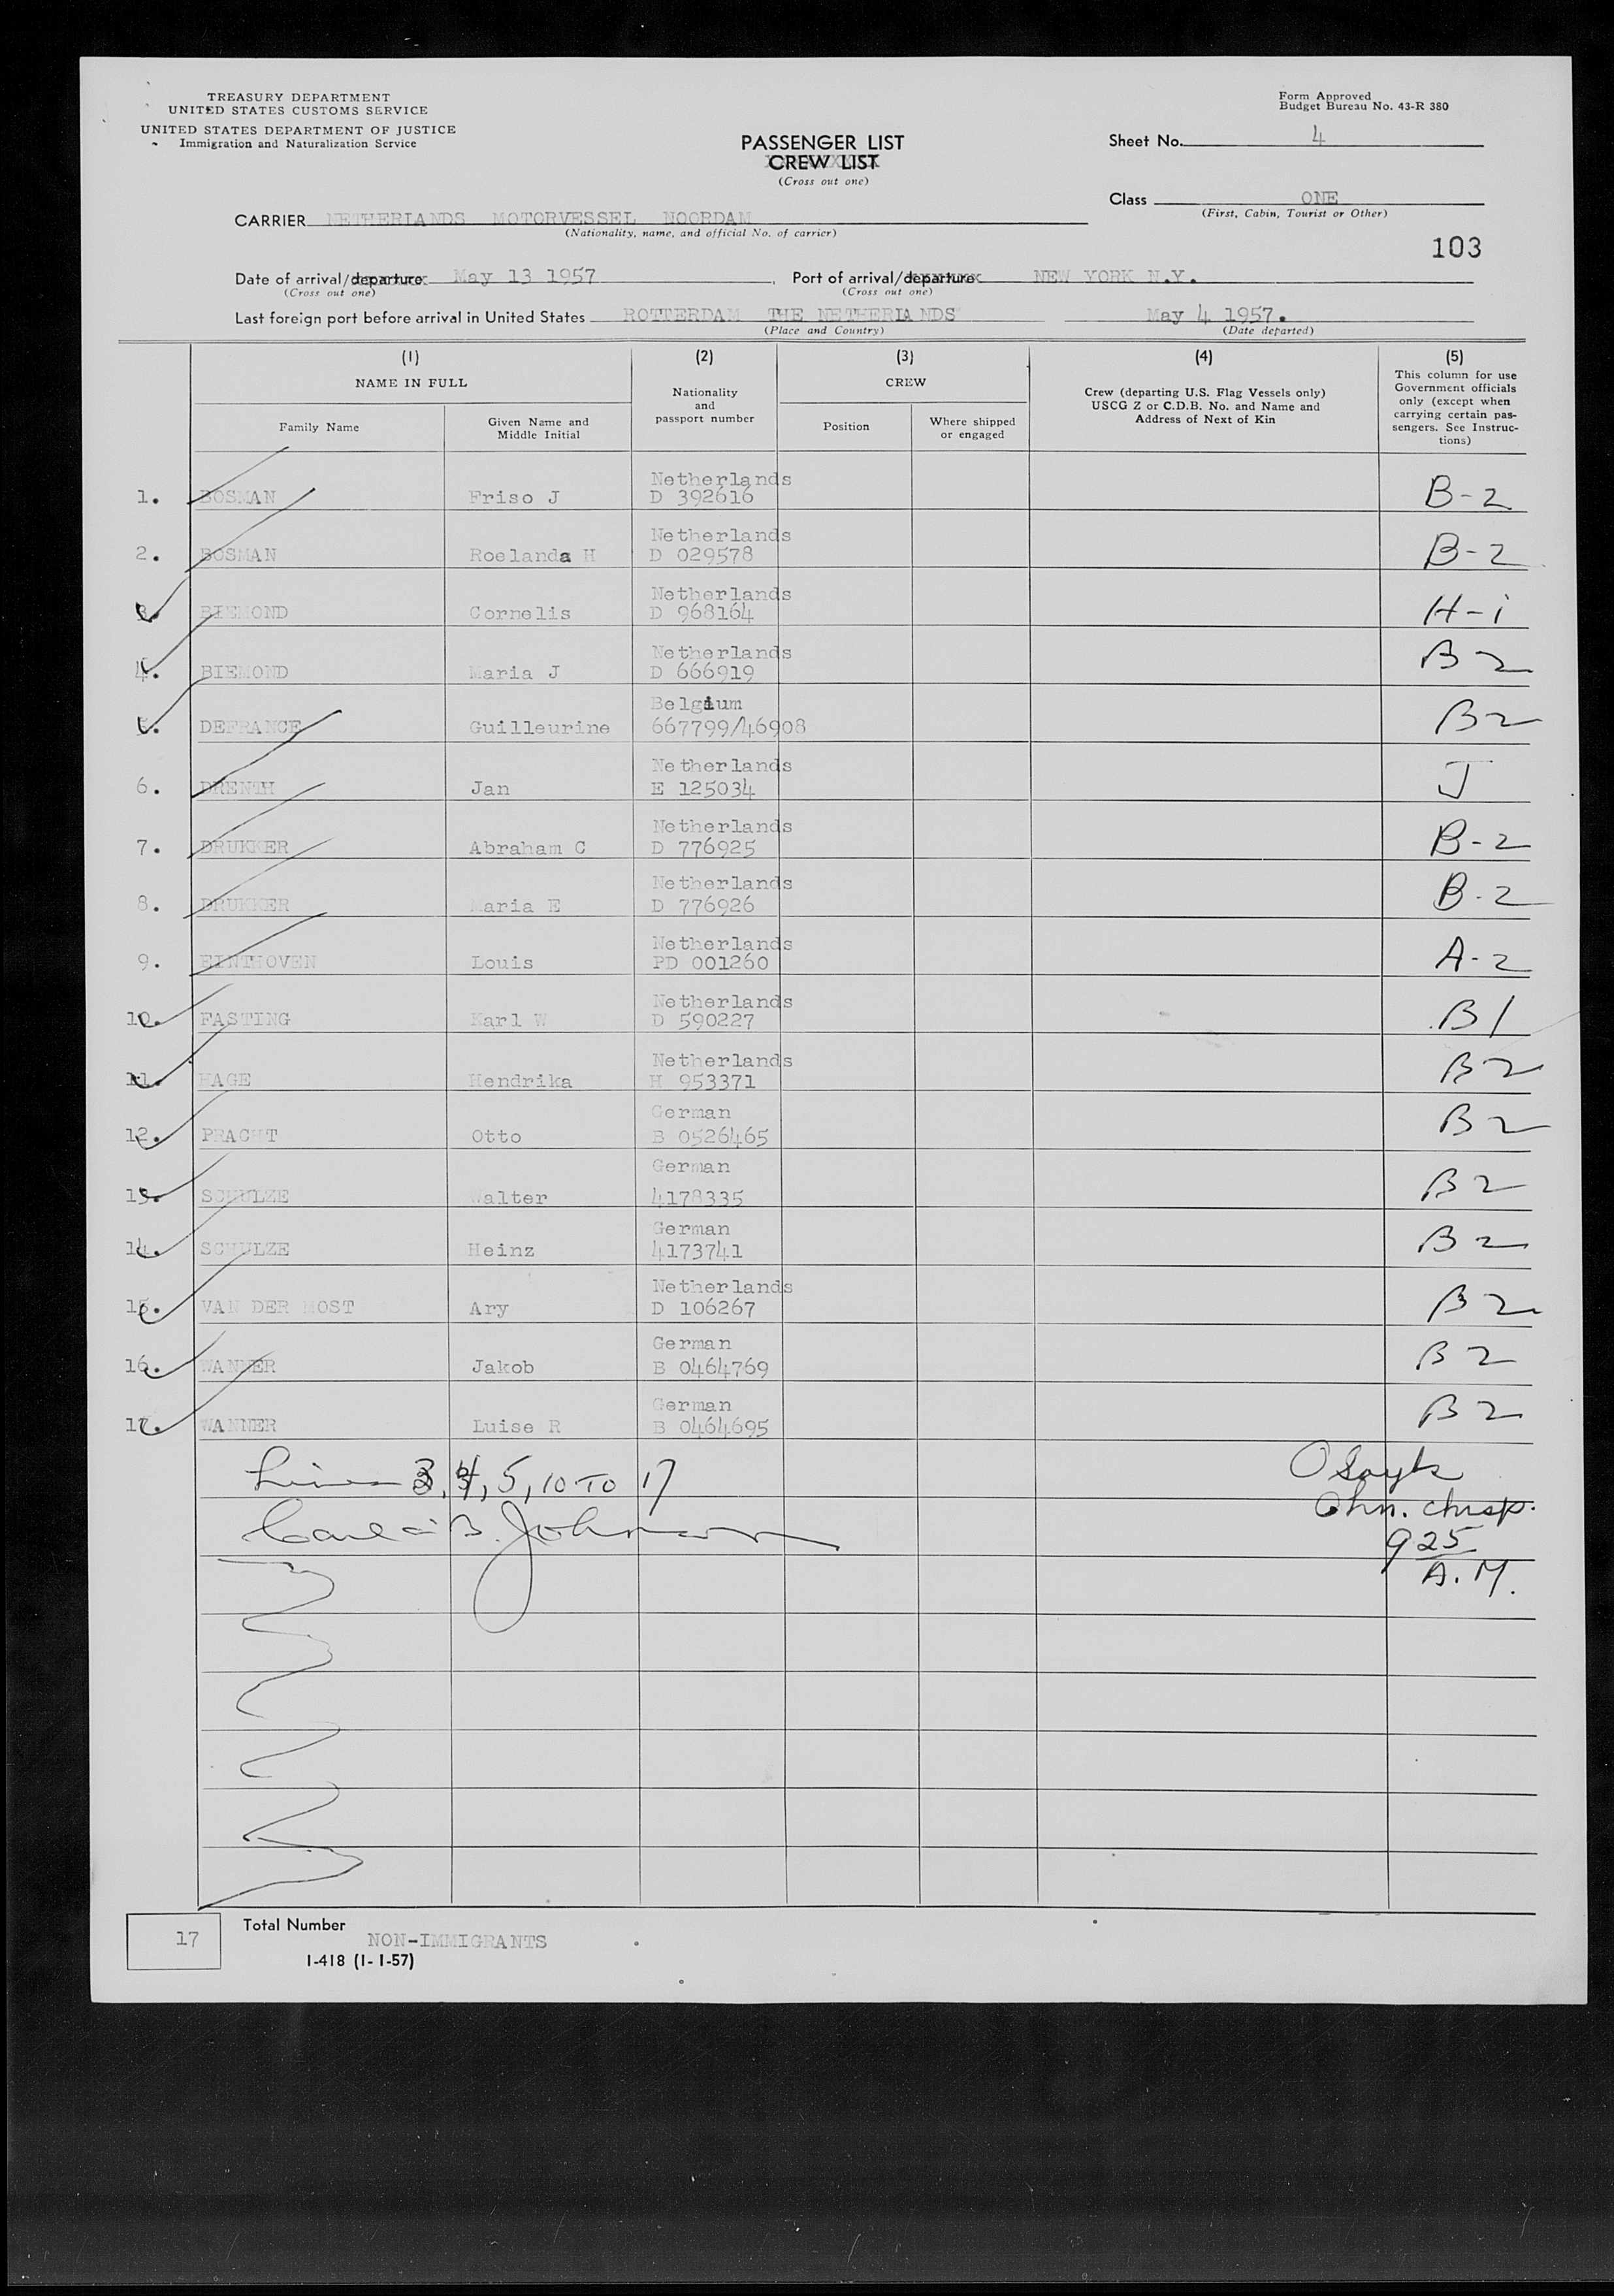 TREASURY DEPARTMENT
UNITED STATES CUSTOMS SERVICE
UNITED STATES DEPARTMENT OF JUSTICE
Immigration and Naturalization Service
Form Approved
Budget Bureau No. 43-R 380
PASSENGER LIST
CREW LIST
(Cross out one)
Sheet No. 4
Class ONE
(First, Cabin, Tourist or Other)
CARRIER NETHERLANDS MOTORVESSEL NOORDAM
(Nationality, name, and official No. of carrier)
103
Date of arrival/departure May 13 1957. Port of arrival/departure NEW YORK N.Y.
(Cross out one) (Cross out one)
Last foreign port before arrival in United States ROTTERDAM THE NETHERLANDS May 4 1957.
(Place and Country) (Date departed)
(1) (2) (3) (4) (5)
NAME IN FULL
Family Name
Given Name and
Middle Initial
Nationality
and
passport number
CREW
Position
Where shipped
or engaged
Crew (departing U.S. Flag Vessels only)
USCG Z or C.D.B. No. and Name and
Address of Next of Kin
This column for use
Government officials
only (except when
carrying certain pas-
sengers. See Instruc-
tions)
Netherlands
1. BOSMAN Friso J D 392616 B-2
Netherlands
2. BOSMAN Roelanda H D 029578 B-2
Netherlands
3. BIEMOND Cornelis D 968164 H-1
Netherlands
4. BIEMOND Maria J D 666919 B2
Belgium
5. DEFRANCE Guilleurine 667799/46908 B2
Netherlands
6. DRENTH Jan E 125034 J
Netherlands
7. DRUKKER Abraham C D 776925 B-2
Netherlands
8. DRUKKER Maria E D 776926 B-2
Netherlands
9. EINTHOVEN Louis PD 001260 A-2
Netherlands
10. FASTING Karl W D 590227 B1
Netherlands
11. HAGE Hendrika H 953371 B2
German
12. PRACHT Otto B 0526465 B2
German
13. SCHULZE Walter 4178335 B2
German
14. SCHULZE Heinz 4173741 B2
Netherlands
15. VAN DER MOST Ary D 106267 B2
German
16. WANNER Jakob B 0464769 B2
German
17. WANNER Luise R B 0464695 B2
Lines 3, 4, 5, 10 TO 17
B. Johnson
925
A.M.
17 Total Number
NON-IMMIGRANTS
I-418 (1-1-57)